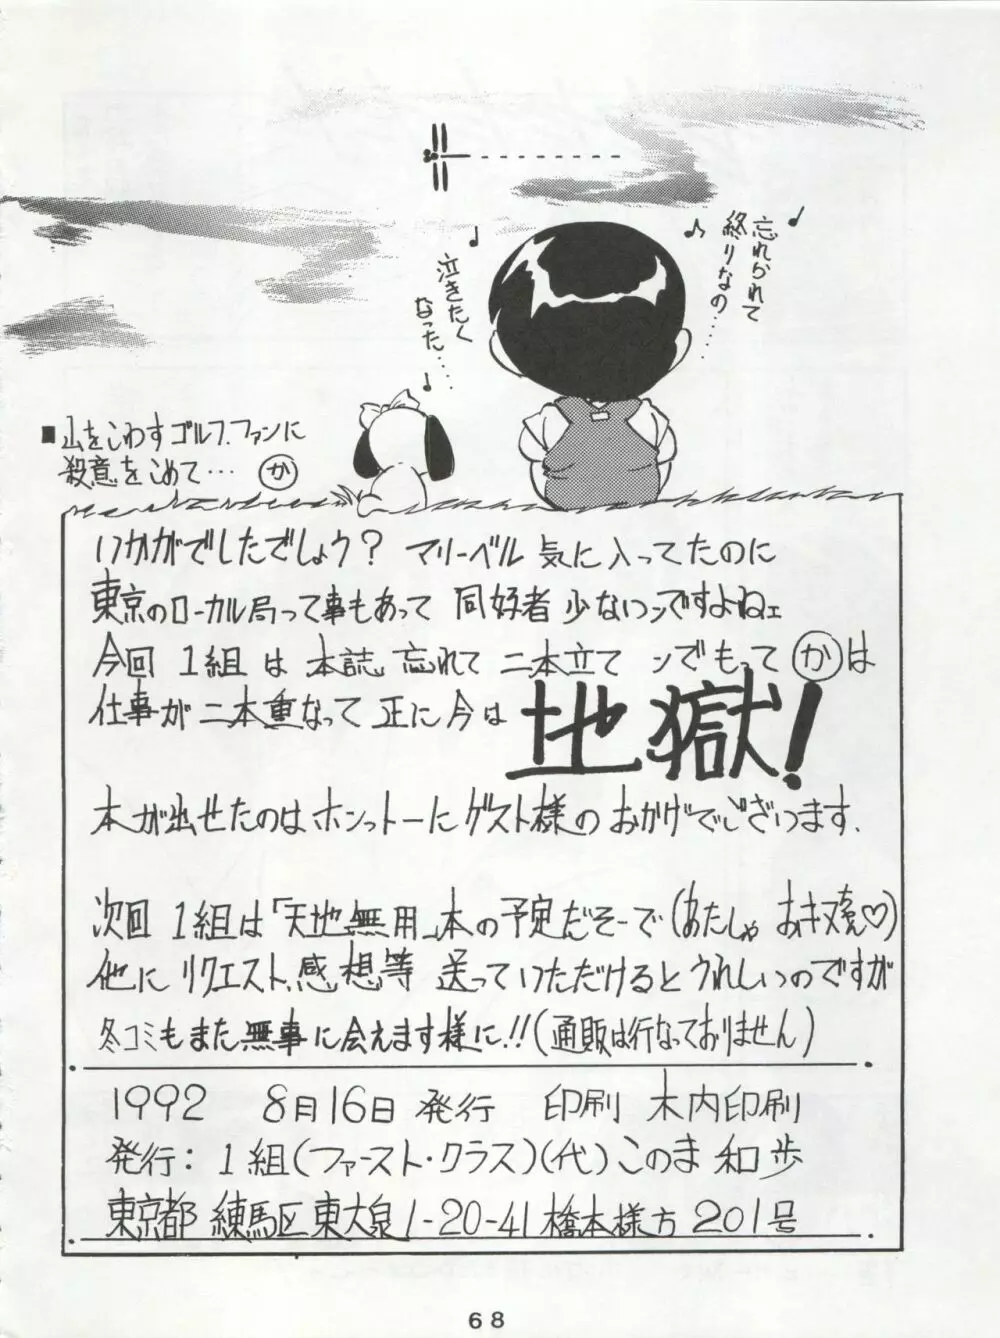 忘れられて
終りなの……
泣きたく
なった……
■山をこわすゴルフファンに
殺意をこめて… か
いかがでしたでしょう? マリーベル 気に入ってたのに
東京のローカル局って事もあって 同好者 少ないンですよねェ
今回 1組 は 本誌 忘れて 二本立て ンでもって か は
仕事が 二本重なって 正に 今は 地獄!
本が出せたのは ホンットーに ゲスト様の おかげでございます.
次回 1組は「天地無用」本の予定だそーで (あたしゃ おキヌ竜♡)
他に リクエスト、感想等 送っていただけると うれしいのですが
冬コミもまた 無事に会えます様に!! (通販は行なっておりません)
1992 8月16日 発行 印刷 木内印刷
発行: 1組 (ファースト・クラス) (代) このま 和歩
東京都 練馬区東大泉 1-20-41 橋本様方 201号
68